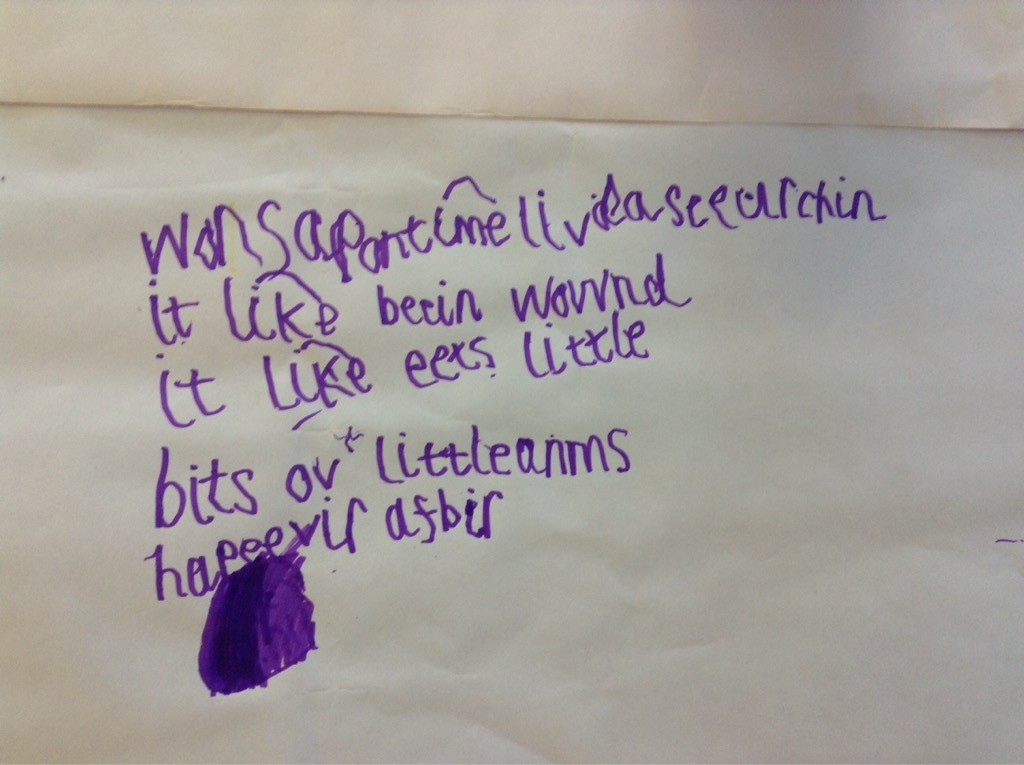 wonsapontime livdaseeurchin
it like becin wownd
it like eets little
bits ov littleanms
hapeevir afbir